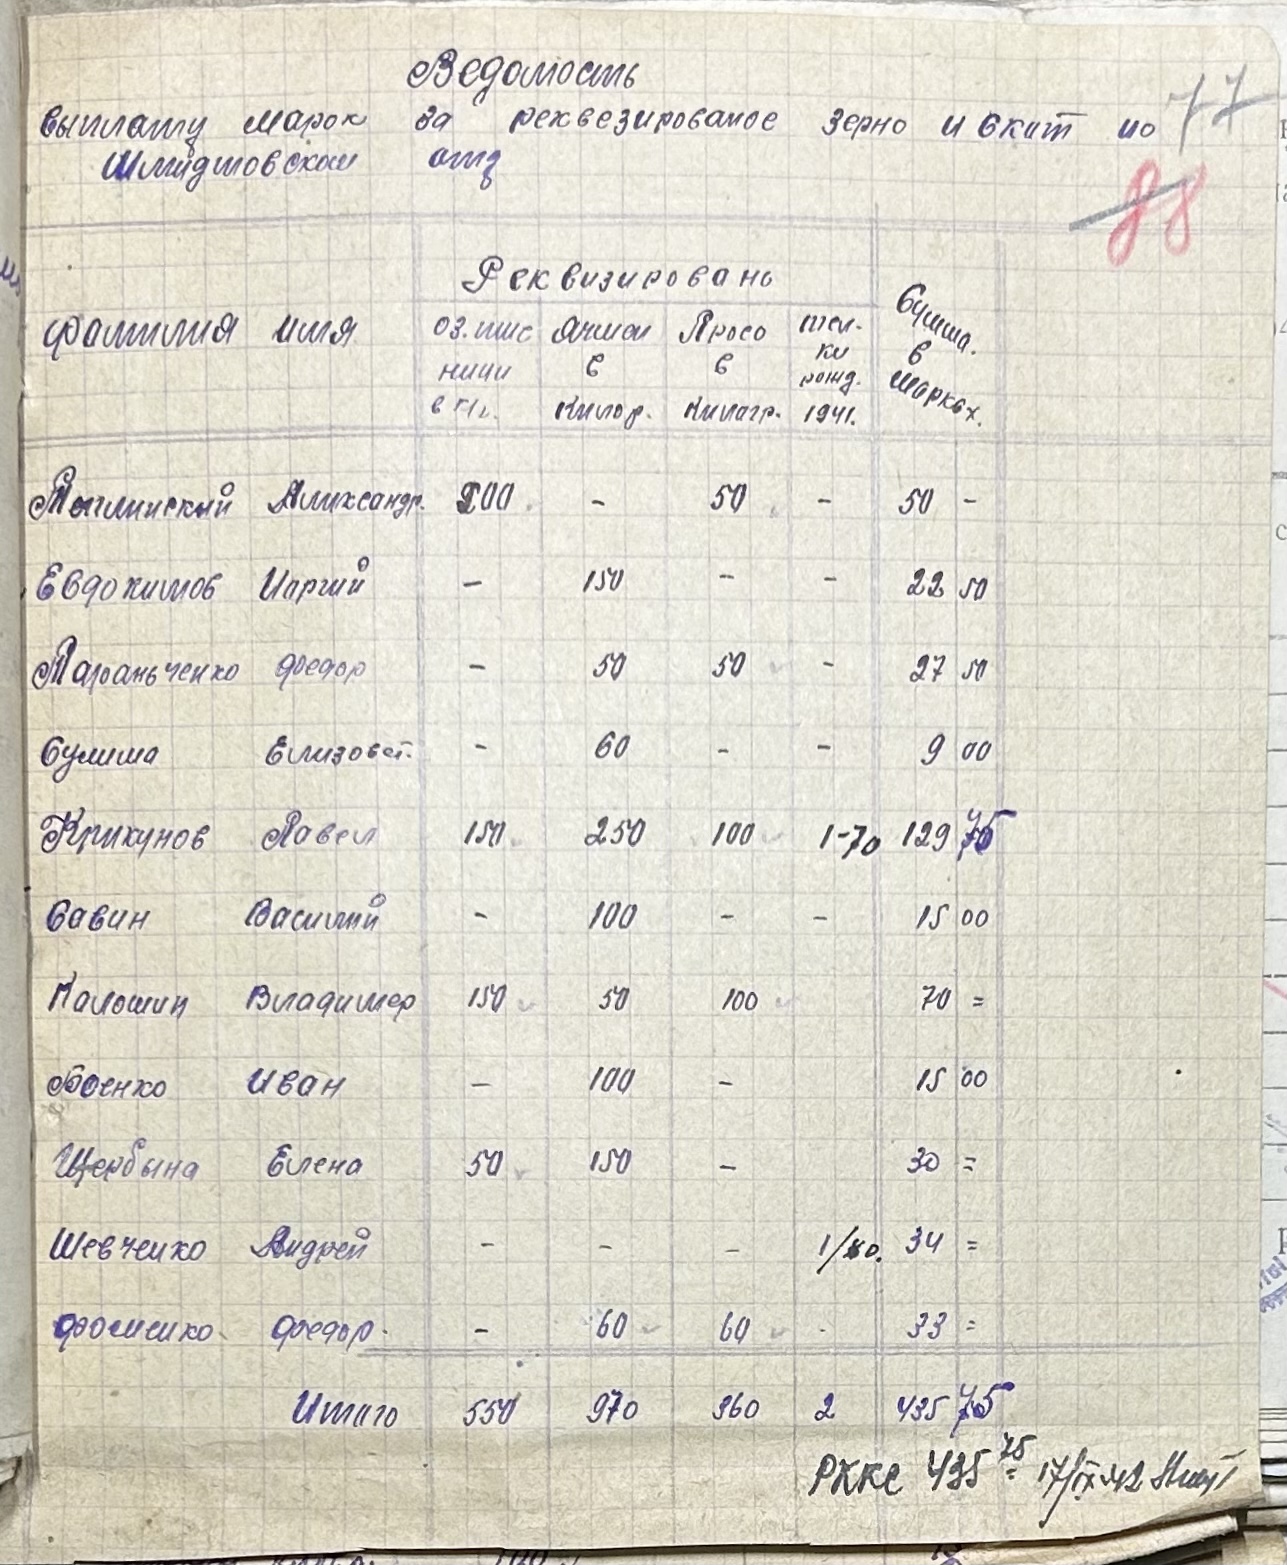 Ведомость
выплату марок за реквезированое зерно и скит по
Шмидтовскои
77
88
Реквизировано
фамилия имя оз. пше ячмен Просо тел- Сумма
ници в в ки в
рожд. марках.
в кг. килогр. килагр. 1941.
Александр. 200 - 50 - 50 -
Евдокимов - 150 - - 22 50
Тараньченко Федор - 50 50 - 27 50
Сулима Елизовет. - 60 - - 9 00
Крикунов Павел 150 250 100 1-70 129 75
Савин Василий - 100 - - 15 00
Калошин Владимер 150 50 100 70 =
Боенко Иван - 100 - 15 00
Щербына Елена 50 150 - 30 =
Шевченко Андрей - - - 1/80. 34 =
Фоменко Федор - 60 60 - 33 =
Итаго 550 970 360 2 435 75
РККС 435 75 17/IX-42